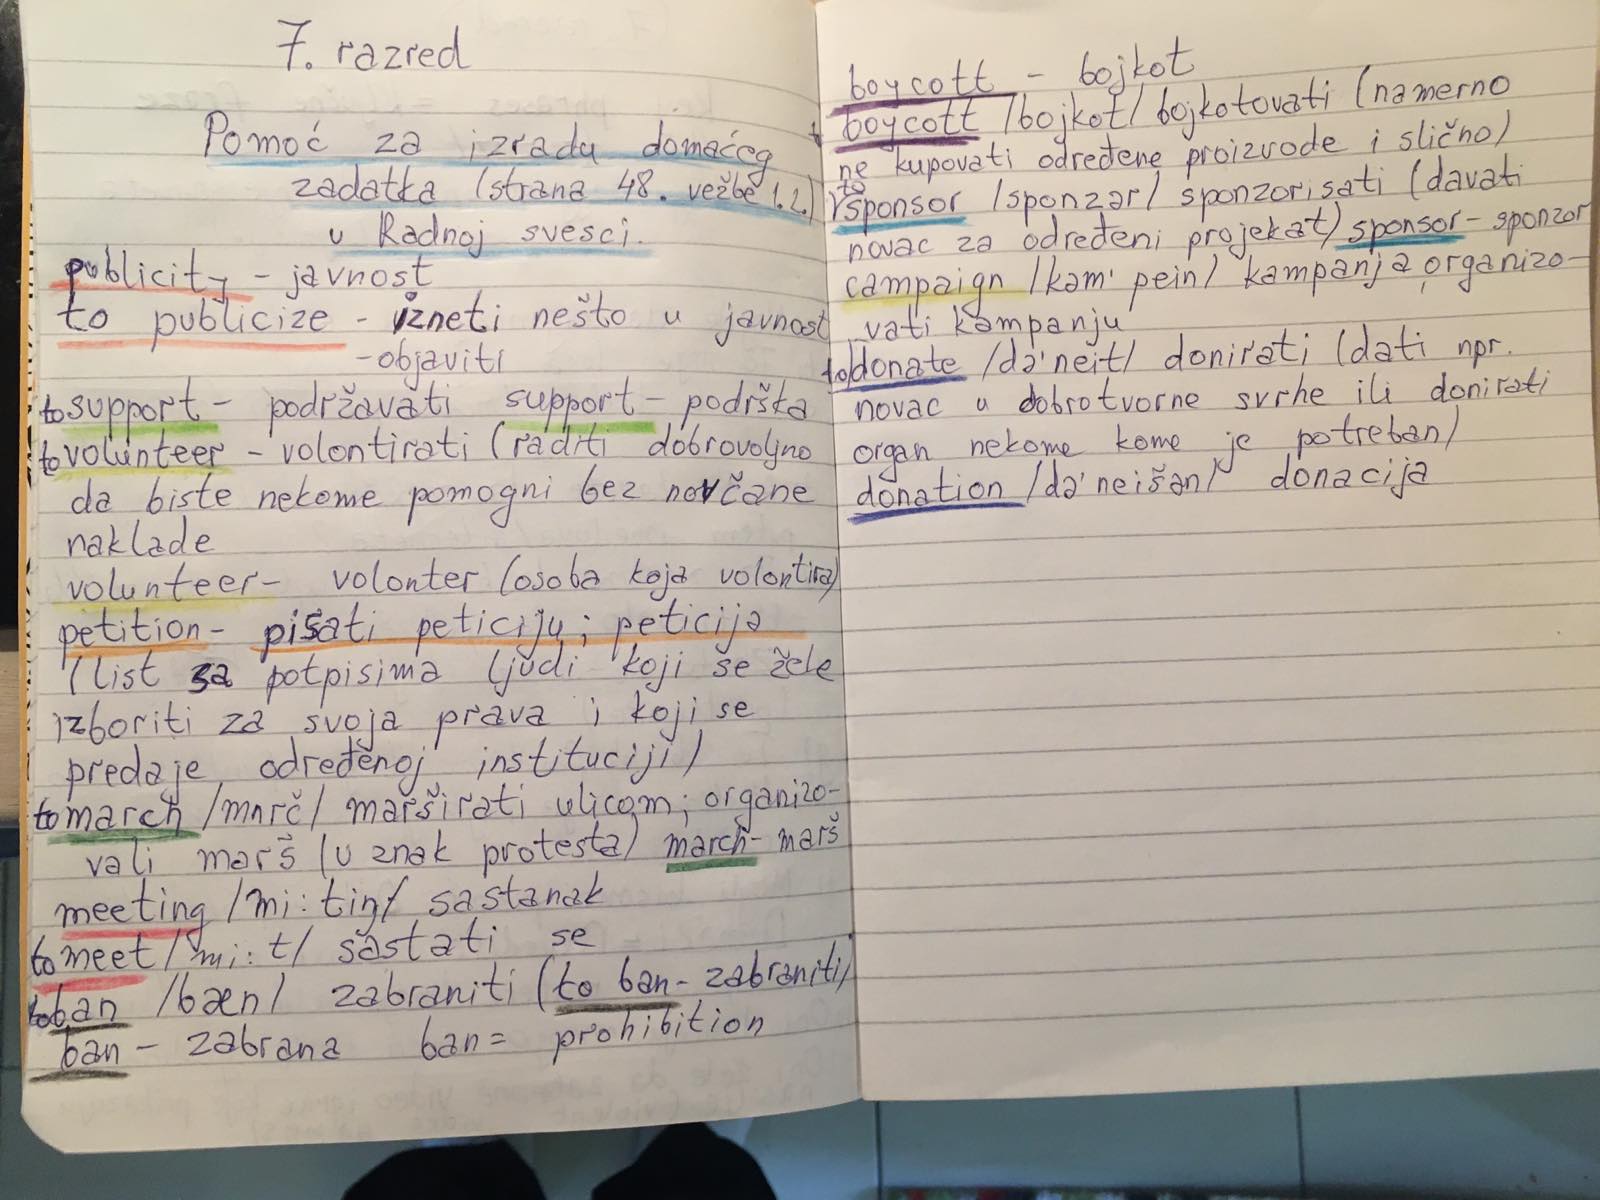 7. razred
Pomoć za izradu domaćeg
zadatka (strana 48. vežbe 1.2.)
u Radnoj svesci.
publicity - javnost
to publicize - izneti nešto u javnost
- objaviti
to support - podržavati support - podrška
to volunteer - volontirati (raditi dobrovoljno
da biste nekome pomogni bez novčane
naklade
volunteer - volonter (osoba koja volontira)
petition - pisati peticiju; peticija
(list sa potpisima ljudi koji se žele
izboriti za svoja prava i koji se
predaje određenoj instituciji)
to march /marč/ marširati ulicom; organizo-
vali marš (u znak protesta) march - marš
meeting /mi:tiŋ/ sastanak
to meet /mi:t/ sastati se
to ban /bæn/ zabraniti (to ban - zabraniti)
ban - zabrana ban = prohibition
boycott - bojkot
to boycott /bojkot/ bojkotovati (namerno
ne kupovati određene proizvode i slično)
to sponsor /sponzər/ sponzorisati (davati
novac za određeni projekat) sponsor - sponzor
campaign /kəm'pein/ kampanja, organizo-
vati kampanju
to donate /də'neit/ donirati (dati npr.
novac u dobrotvorne svrhe ili donirati
organ nekome kome je potreban)
donation /də'neišən/ donacija